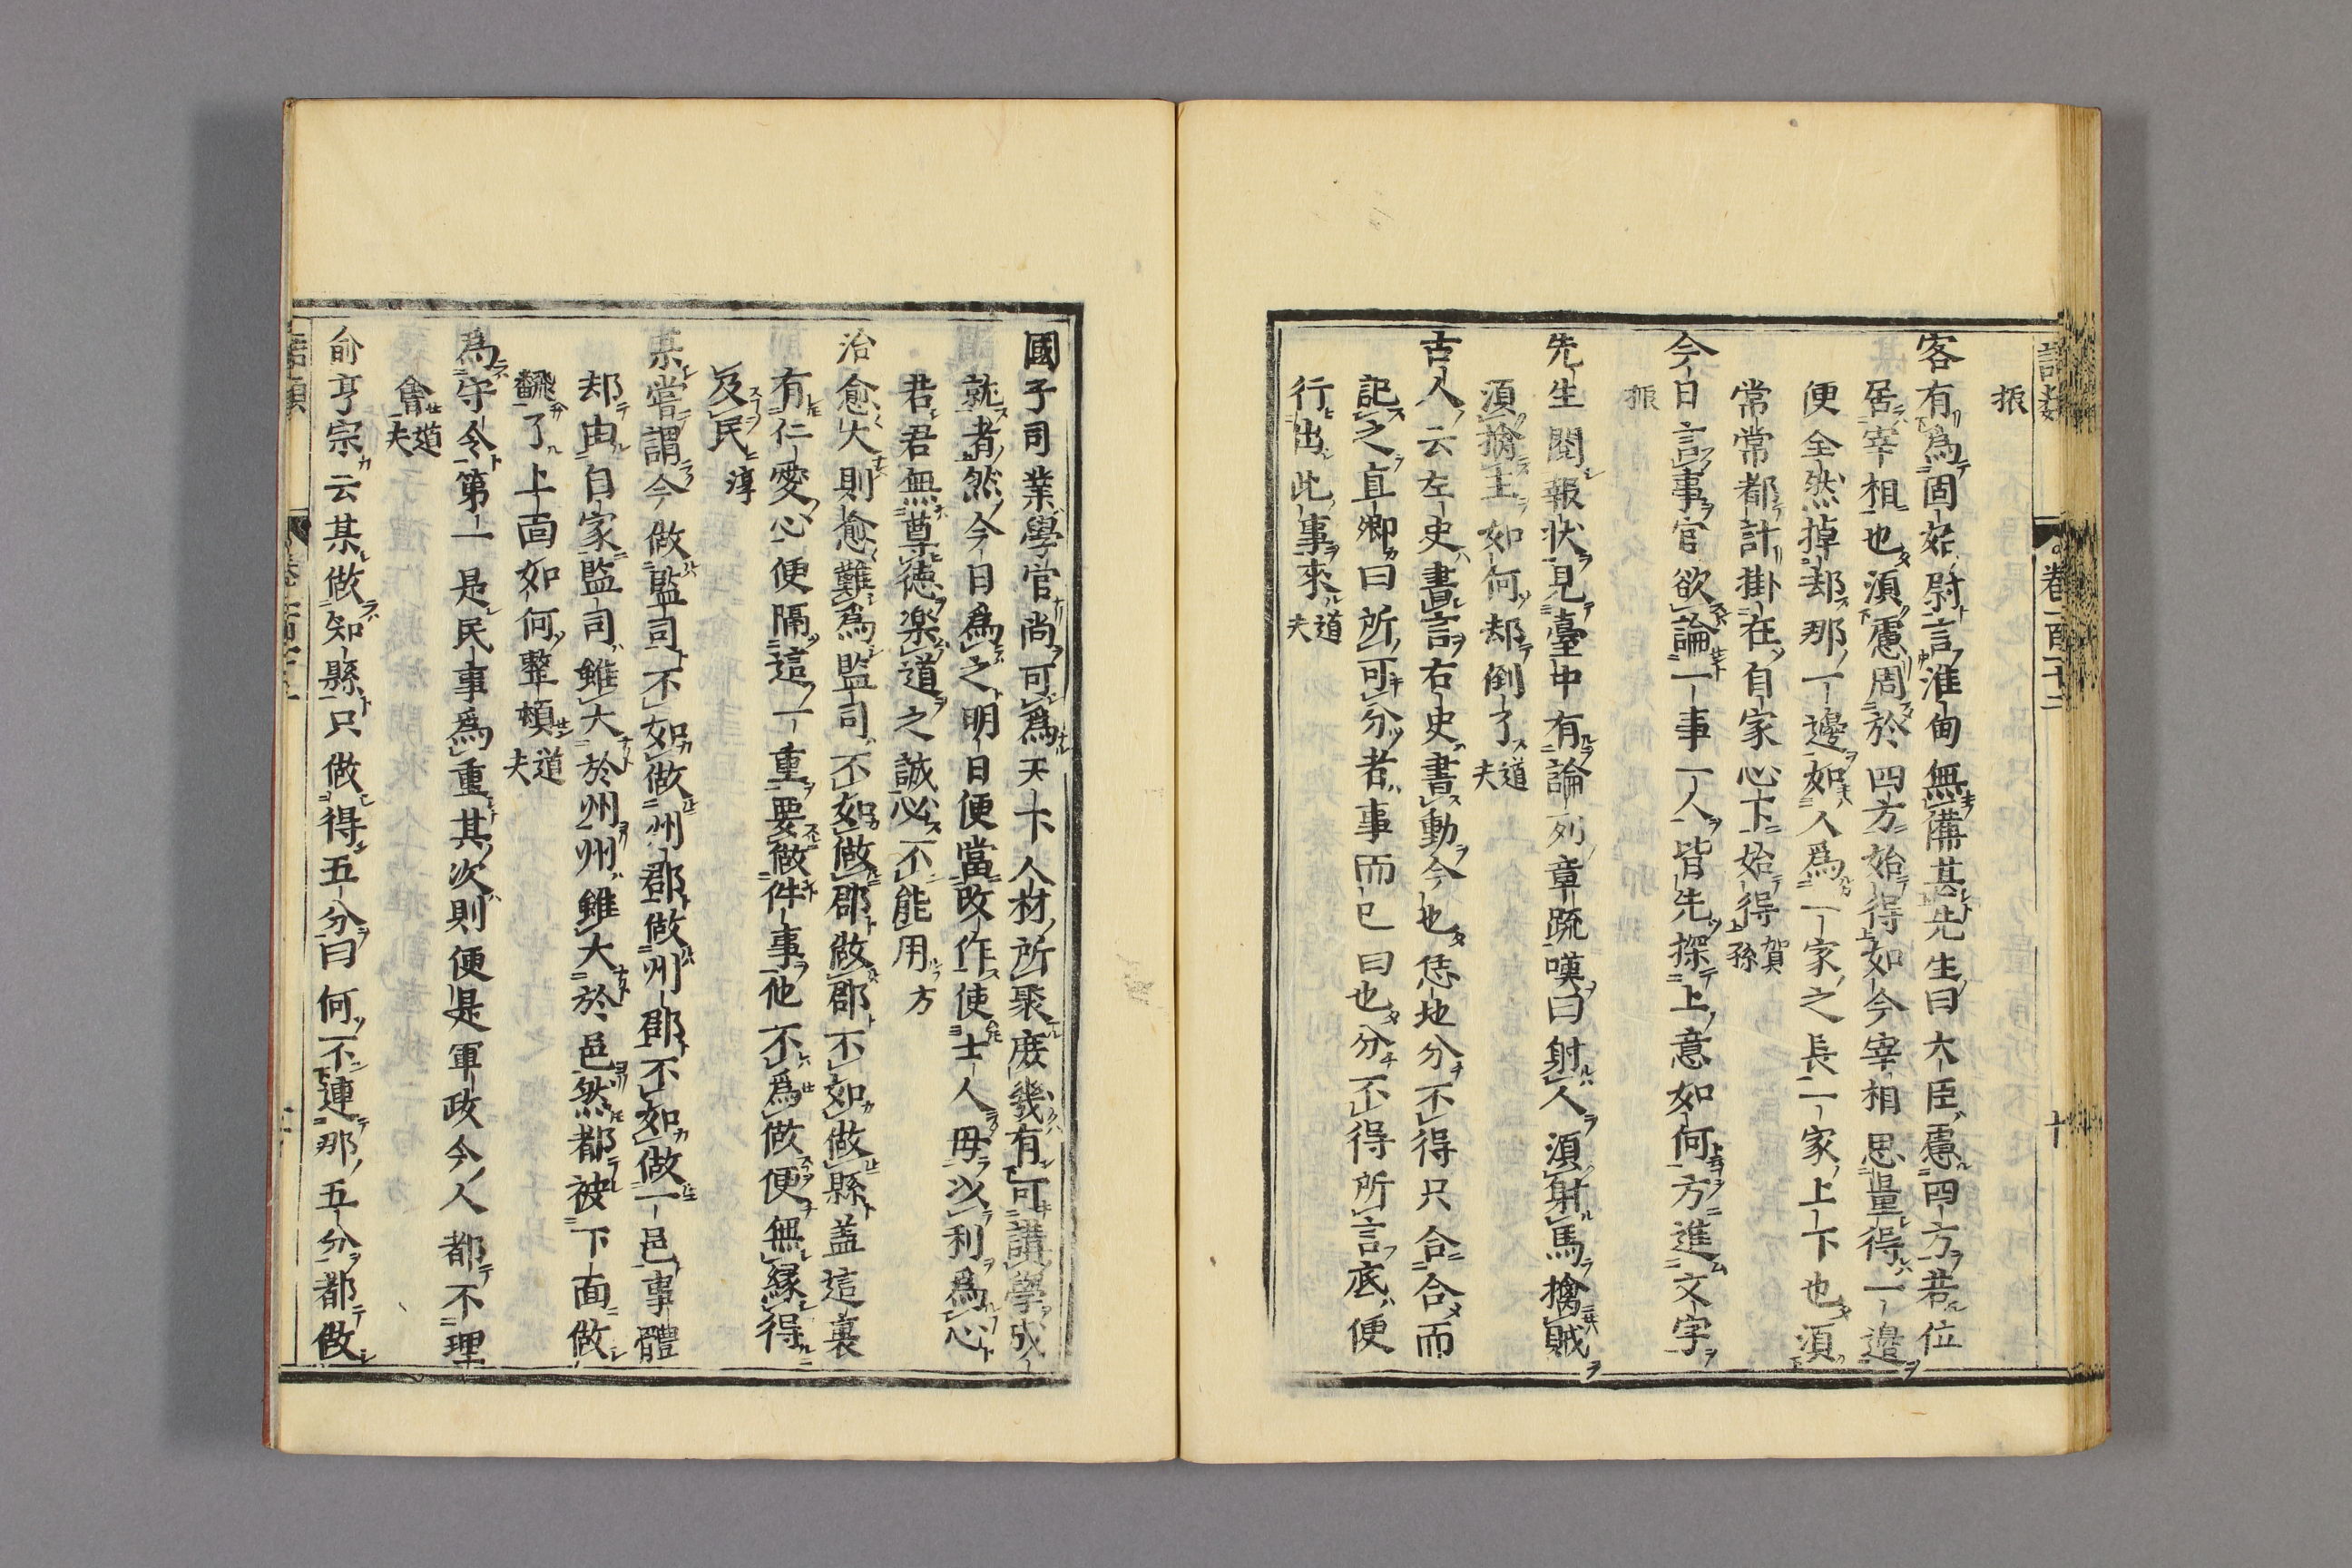 振
客有爲固始尉言淮甸無備甚先生曰大臣慮四方若位
居宰相也須慮周於四方始得如今宰相思量得一邊
便全然掉却那一邊如人爲一家之長一家上下也須
常常都計掛在自家心下始得賀孫
今日言事官欲論一事一人皆先探上意如何方進文字
振
先生閱報狀見臺中有論列章疏嘆曰射人須射馬擒賊
須擒王如何却倒了道夫
古人云左史書言右史書動今也恁地分不得只合合而
記之直卿曰所可分者事而已曰也分不得所言底便
行出此事來道夫
語類 卷一百十二 十
國子司業學官尚可爲天下人材所聚庶幾有可講學成
就者然今日爲之明日便當改作使士人毋以利爲心
君君無尊德楽道之誠必不能用方
治愈大則愈難爲監司不如做郡做郡不如做縣蓋這裏
有仁愛心便隔這一重要做件事他不爲做便無緣得
及民淳
某嘗謂今做監司不如做州郡做州郡不如做一邑事體
却由自家監司雖大於州州雖大於邑然都被下面做
翻了上面如何整頓道夫
爲守令第一是民事爲重其次則便是軍政今人都不理
會道夫
俞亨宗云某做知縣只做得五分曰何不連那五分都做